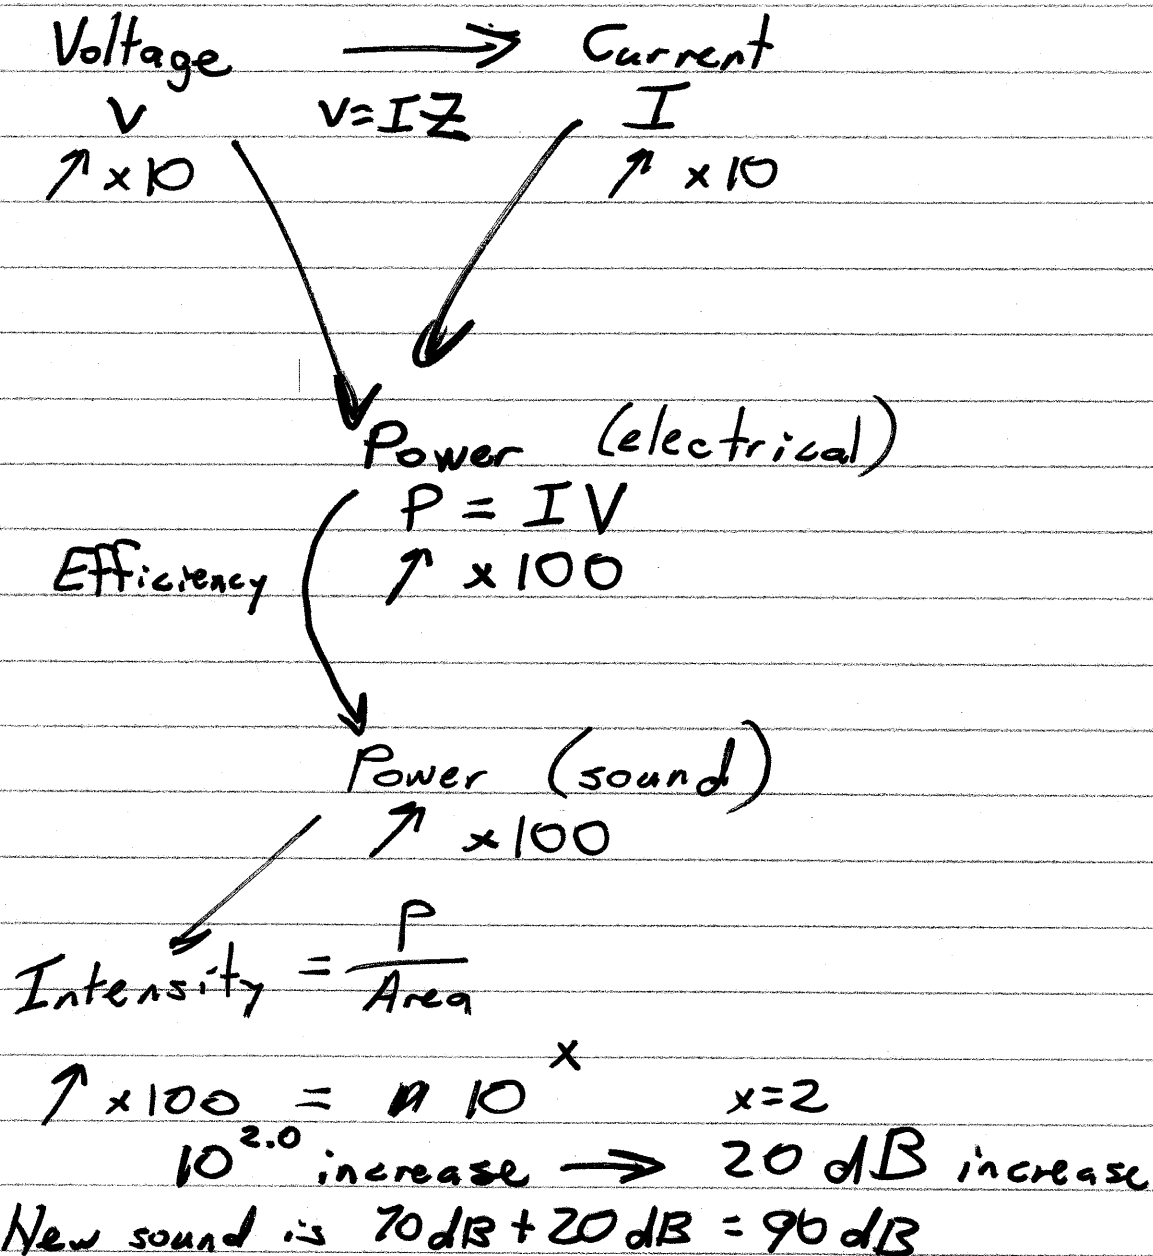 Voltage → Current
V V=IZ I
↗ x10 ↗ x10
Power (electrical)
P = IV
Efficiency ↗ x100
Power (sound)
↗ x100
Intensity = P / Area
↗ x100 = 10^x x=2
10^2.0 increase → 20 dB increase
New sound is 70dB + 20dB = 90 dB